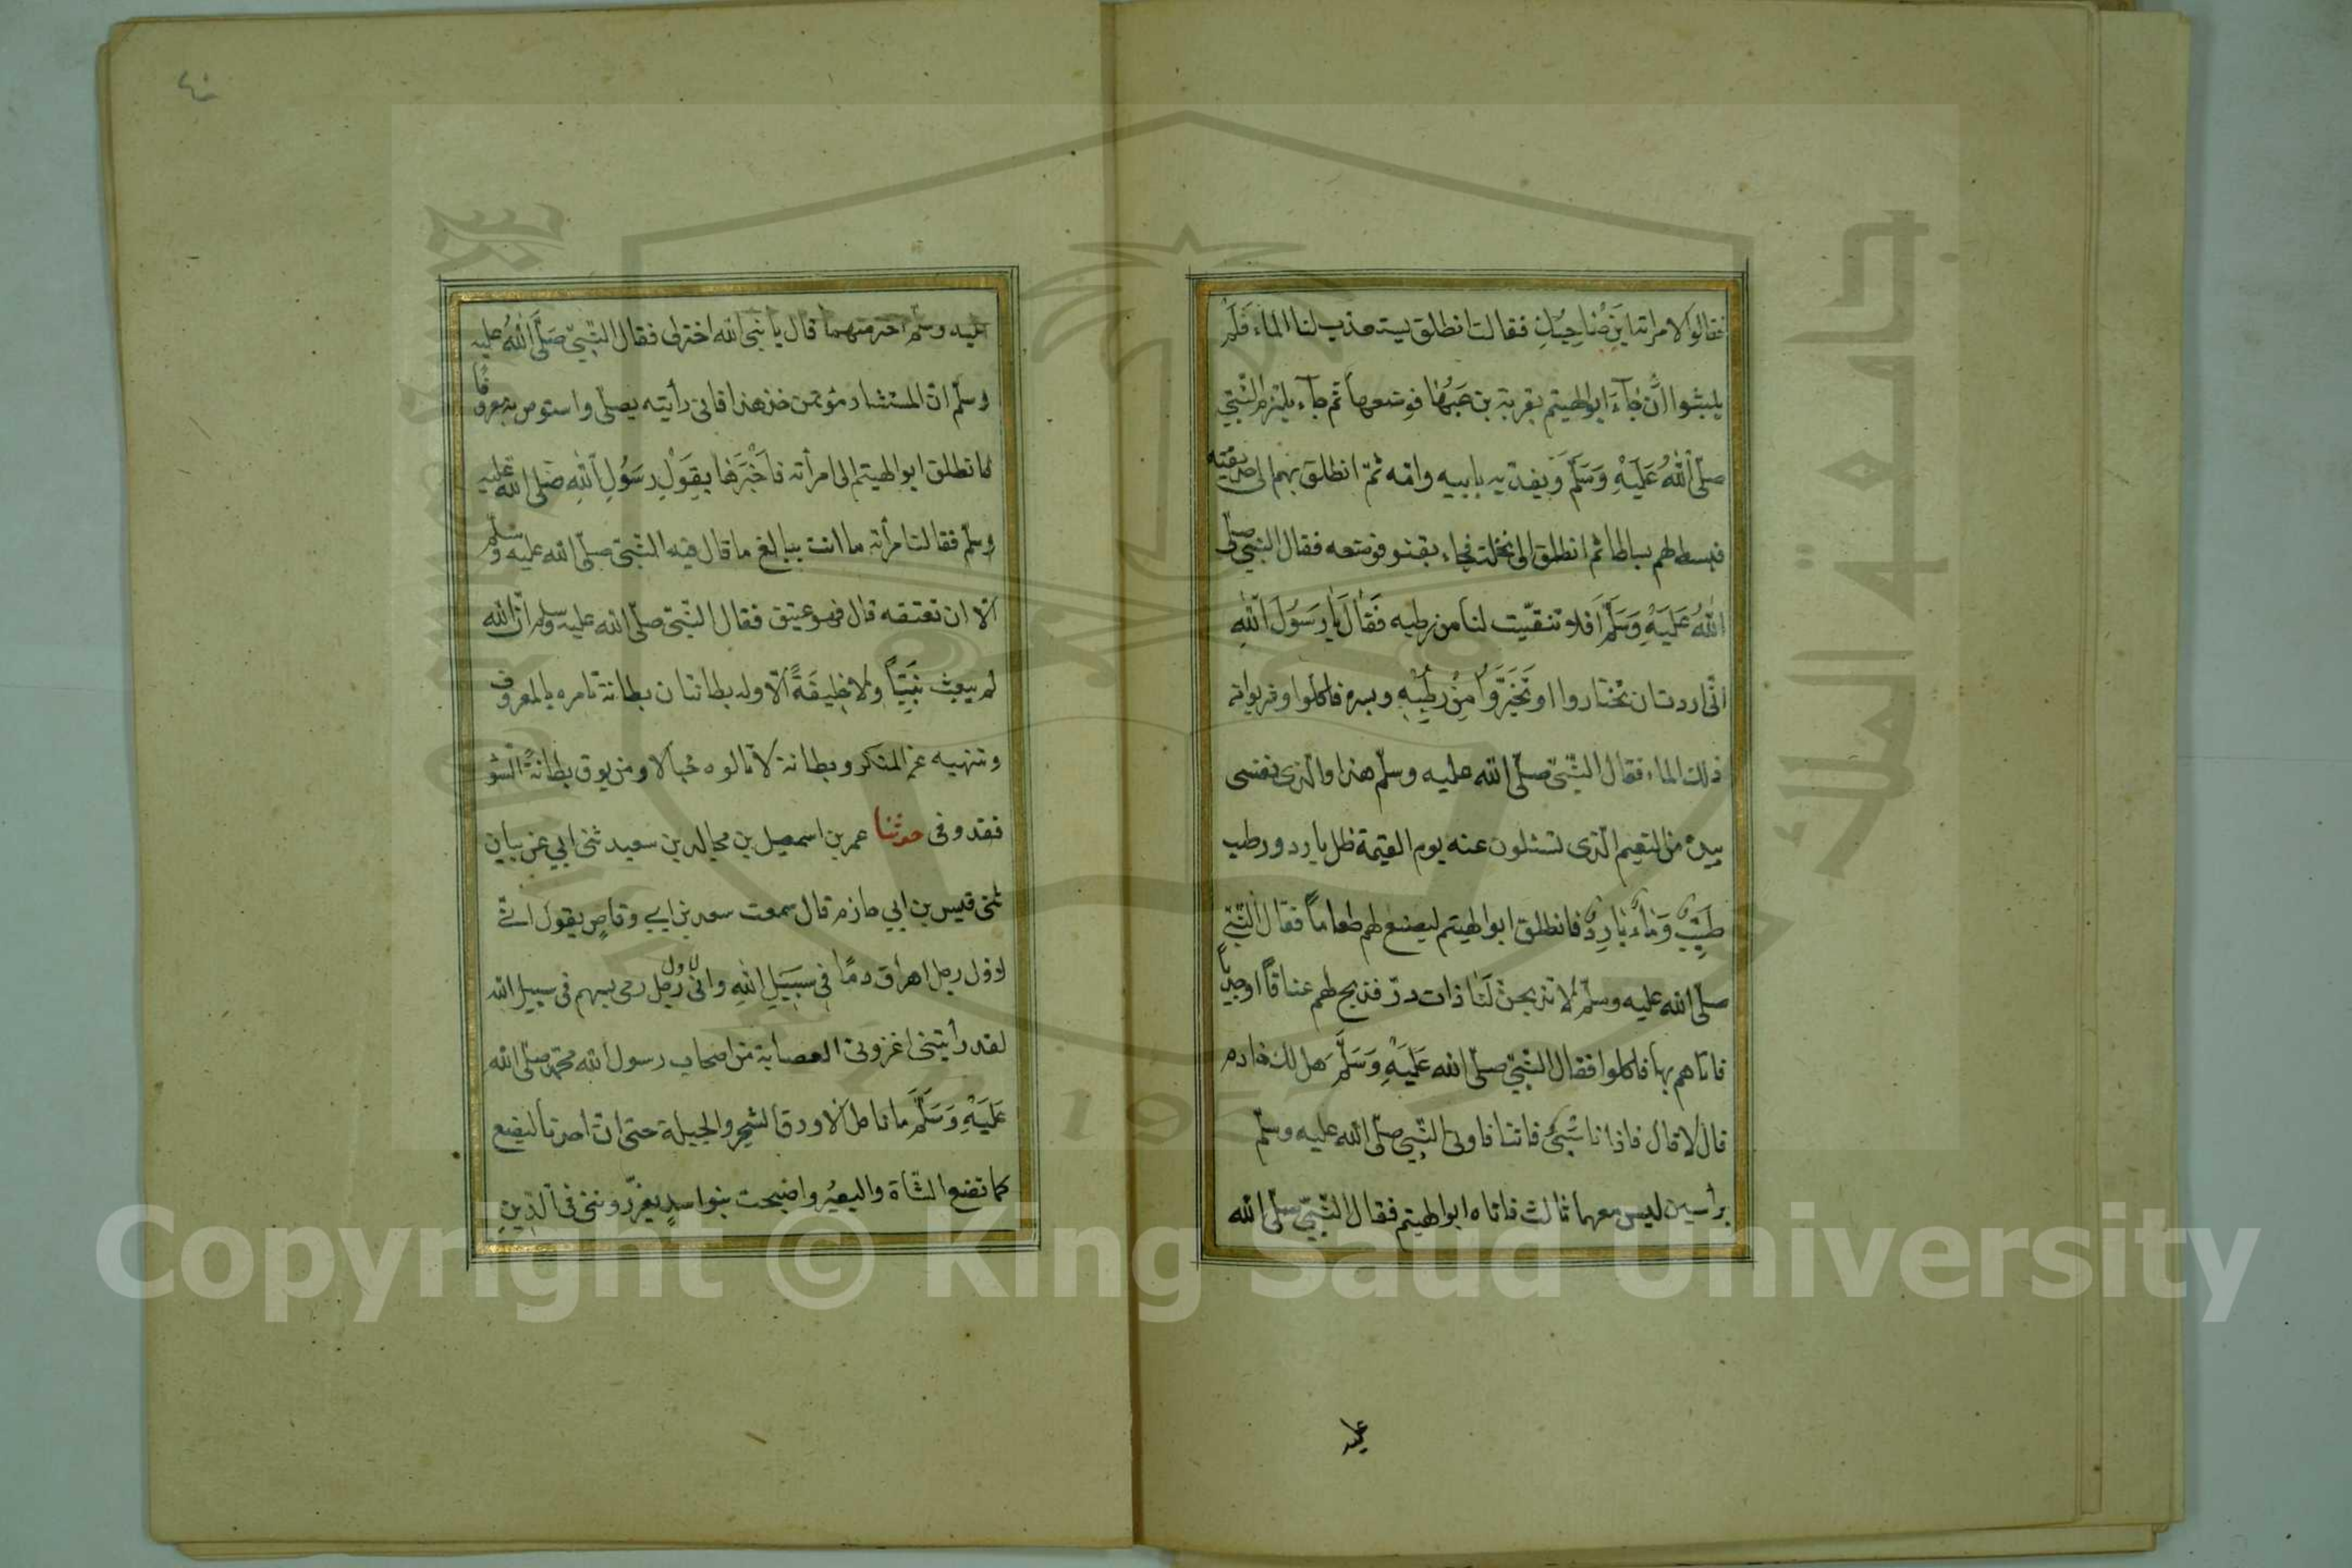 فقالوا لامراته اين صَاحِبُكِ فقالت انطلق يستعذب لنا الماء فَلَمْ
يلبثوا اَنْ جَآءَ ابو الهيثم بقربة يزعَبُهَا فوضعها ثم جآء يلتزم النَّبِيَّ
صلّى اللّٰهُ عَلَيْهِ وَسَلَّمَ وَيفدّيه بابيه وامّه ثمّ انطلق بهم الى حديقته
فبسط لهم بساطا ثم انطلق الى نخلة فجاء بقنو فوضعه فقال النبي صلّى
اللّٰهُ عَلَيْهِ وَسَلَّمَ اَفلا تنقّيت لنا من رطبه فَقَالَ يَا رَسُولَ اللّٰهِ
انّى اردت ان تختاروا او تَخَيَّرُوا مِنْ رُطَبِهِ وبسره فاكلوا وشربوا من
ذلك الماء فقال النّبىّ صلّى اللّه عليه وسلّم هذا والّذى نفسى
بيده من النّعيم الّذى تسئلون عنه يوم القيمة ظل بارد ورطب
طَيِّبٌ وَمَاءٌ بَارِدٌ فانطلق ابو الهيثم ليصنع لهم طعاماً فقال النّبىّ
صلّى اللّه عليه وسلّم لا تذبحنّ لَنَا ذات درّ فذبح لهم عناقًا او جديًا
فاتاهم بها فاكلوا فقال النّبىّ صلّى اللّه عَلَيْهِ وَسَلَّمَ هَل لك خادم
قال لا قال فاذا اتانا سَبْىٌ فاتنا فاوتى النّبي صلّى اللّه عليه وسلّم
برأسين ليس معهما ثالث فاتاه ابو الهيثم فقال النّبىّ صلّى اللّه
عليه
٤٠
عليه وسلّم اختر منهما قال يا نبى اللّه اختر لى فقال النّبىّ صَلَّى اللّٰهُ عليه
وسلّم انّ المستشار مؤتمن خذ هذا فانى رأيته يصلّى واستوص به معروفًا
فانطلق ابو الهيثم الى امرأته فَاَخْبَرَهَا بِقَوْلِ رَسُولِ اللّٰهِ صَلّى اللّه عليه
وسلّم فقالت امرأته ما انت ببالغ ما قال فيه النّبىّ صلّى اللّه عليه وسلّم
الّا ان تعتقه قال فهو عتيق فقال النّبىّ صلّى اللّه عليه وسلم انّ اللّه
لم يبعث نَبِيًّا ولا خَلِيفَةً الّا وله بطانتان بطانة تامره بالمعروف
وتنهيه عن المنكر وبطانة لا تالوه خبالا ومن يوق بطانةَ السّوٓ
فقد وقى حدثنا عمر بن اسمعيل بن مجالد بن سعيد ثنى ابي عن بيان
ثنى قيس بن ابي حازم قال سمعت سعد بن ابي وقاصٍ يقول انّى
لاوّل رجل اهراق دمًا فى سَبِيلِ اللّٰهِ وانّى لاول رجل رمى بسهم فى سبيل اللّه
لقد رأيتنى اغزو فى العصابة من اصحاب رسول اللّه محمّد صلّى اللّه
عَلَيْهِ وَسَلَّمَ ما ناكل الّا ورق الشجر والحبلة حتى انّ احدنا ليضع
كما تضع الشّاة والبعير واصبحت بنو اسدٍ يعزّروننى فى الدِّينِ
Copyright © King Saud University